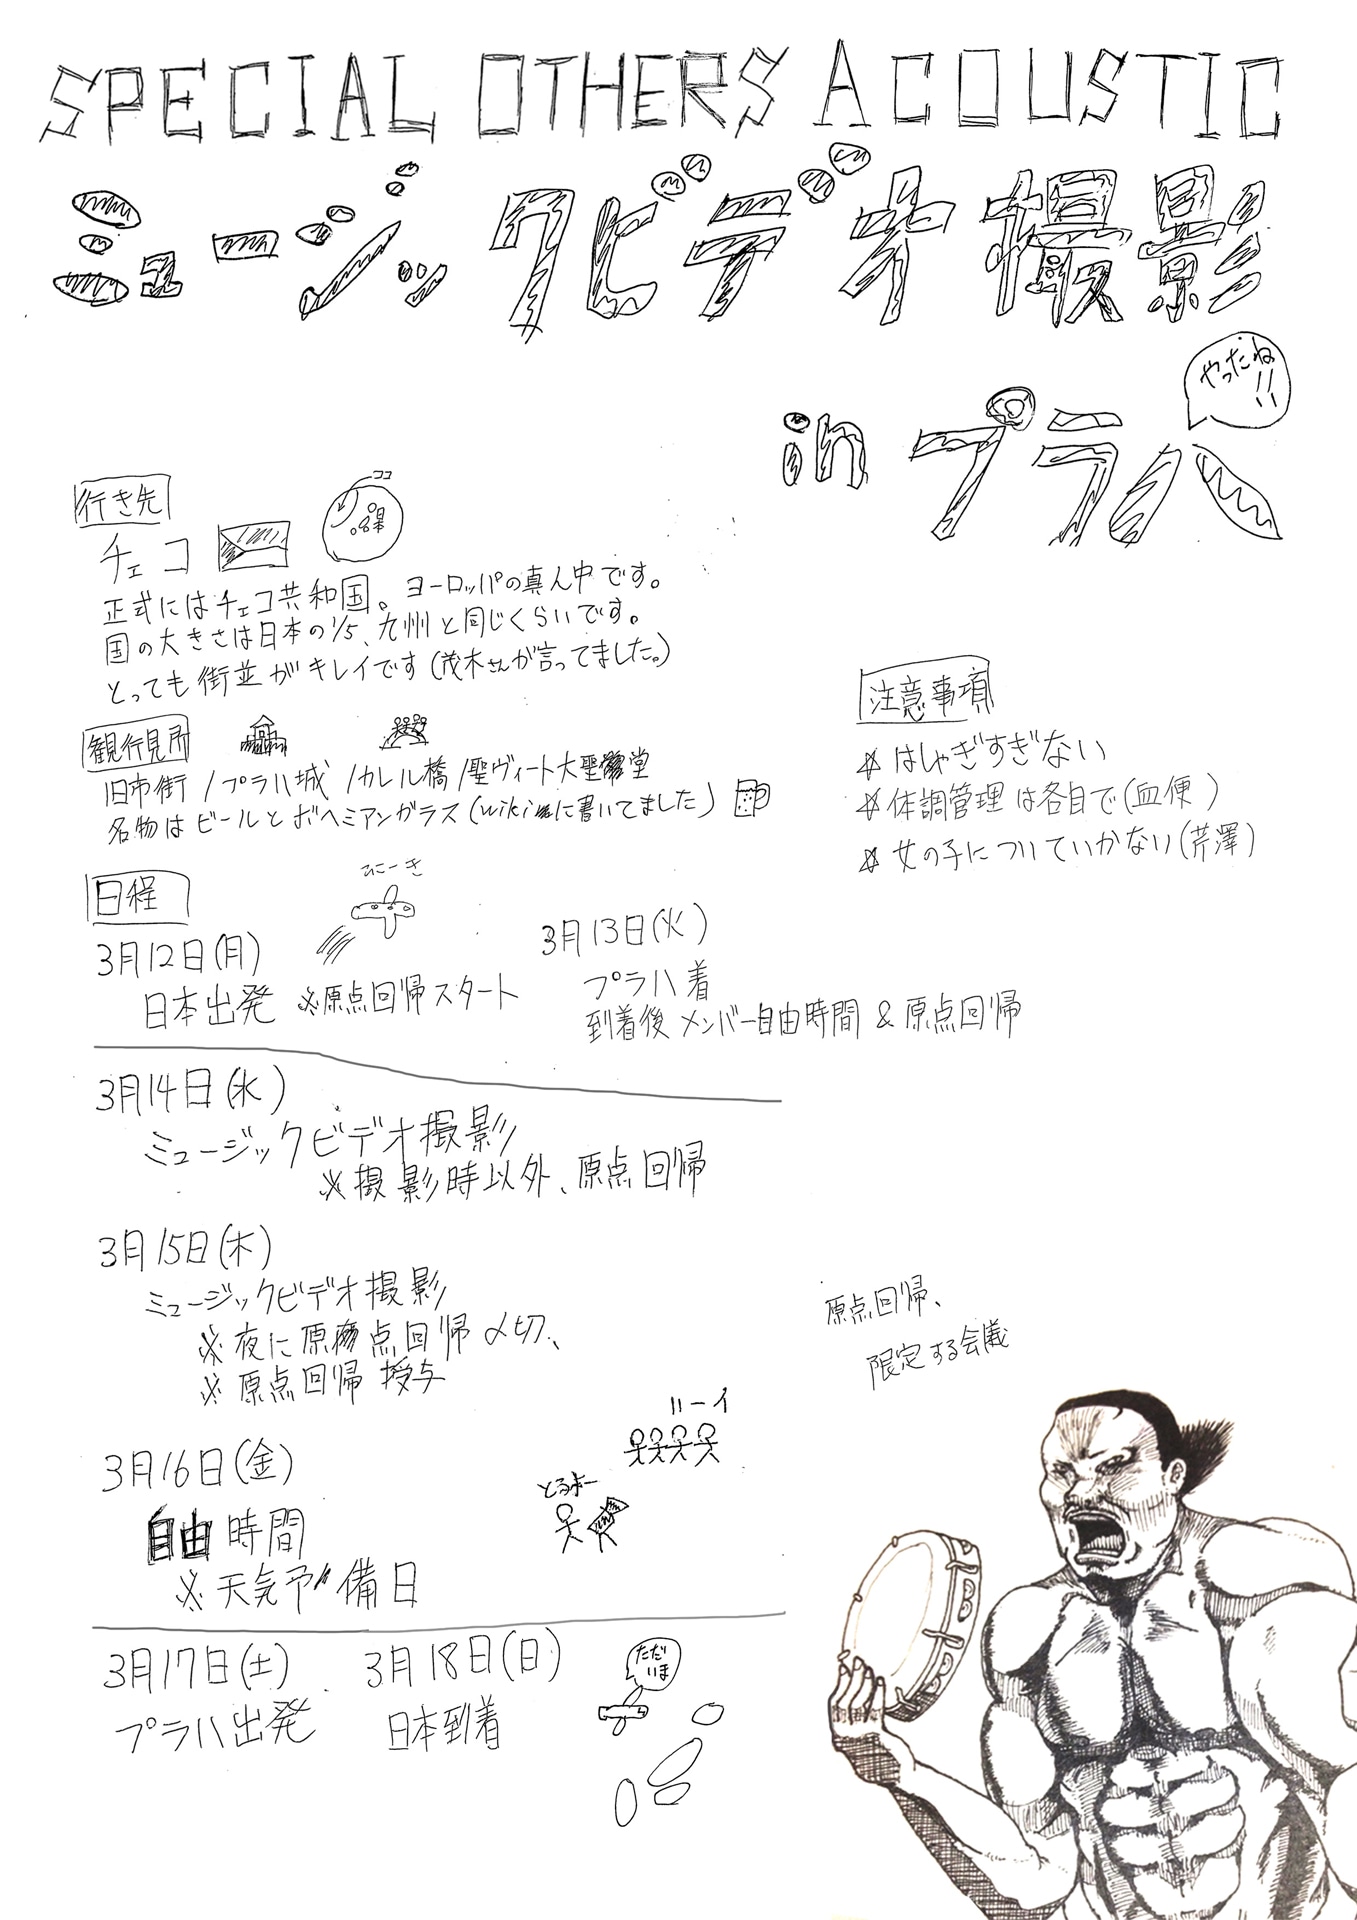 SPECIAL OTHERS ACOUSTIC
ミュージックビデオ撮影
in プラハ
やったね!!
行き先
ココ
日本
チェコ
正式にはチェコ共和国。ヨーロッパの真ん中です。
国の大きさは日本の1/5、九州と同じくらいです。
とっても街並がキレイです(茂木さんが言ってました。)
観行見所
旧市街/プラハ城/カレル橋/聖ヴィート大聖堂
名物はビールとボヘミアンガラス(wikiに書いてました)
注意事項
☆はしゃぎすぎない
☆体調管理は各自で(血便)
☆女の子についていかない(芹澤)
日程
ひこーき
3月12日(月)
日本出発 ※原点回帰スタート
3月13日(火)
プラハ着
到着後メンバー自由時間 & 原点回帰
3月14日(水)
ミュージックビデオ撮影
※撮影時以外、原点回帰
3月15日(木)
ミュージックビデオ撮影
※夜に原点回帰〆切、
※原点回帰 授与
原点回帰、
限定する会議
3月16日(金)
自由時間
※天気予備日
ハーイ
とるよー
3月17日(土)
プラハ出発
3月18日(日)
日本到着
ただいま